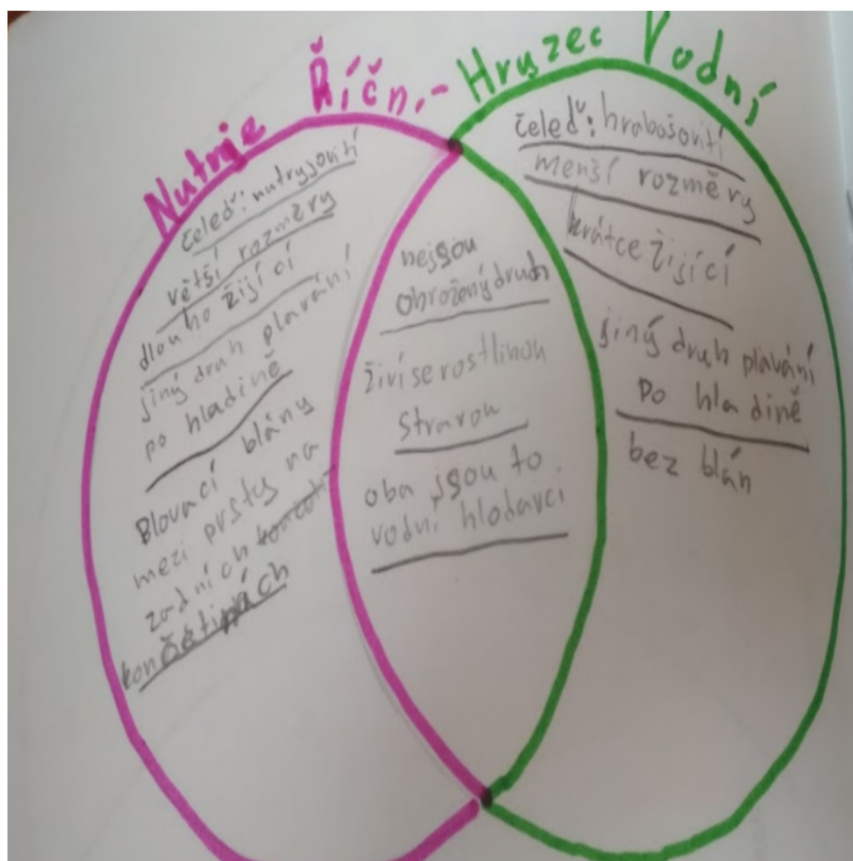 Nutrije Říčn.-
čeleď: nutryjovití
větší rozměry
dlouho žijící
jiný druh plavání
po hladině
Blovací blány
mezi prsty na
zadních
končetinách
nejsou
ohrožený druh
živí se rostlinou
stravou
oba jsou to
vodní hlodavci
Hryzec Vodní
čeleď: hrabošovití
menší rozměry
krátce žijící
jiný druh plavání
po hladině
bez blán